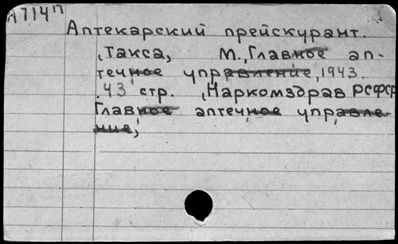 А714п
Аптекарский прейскурант.
Такса, М., Главное ап-
течное управление, 1943.
43 стр. , Наркомздрав РСФСР
Главное аптечное управле-
ние,